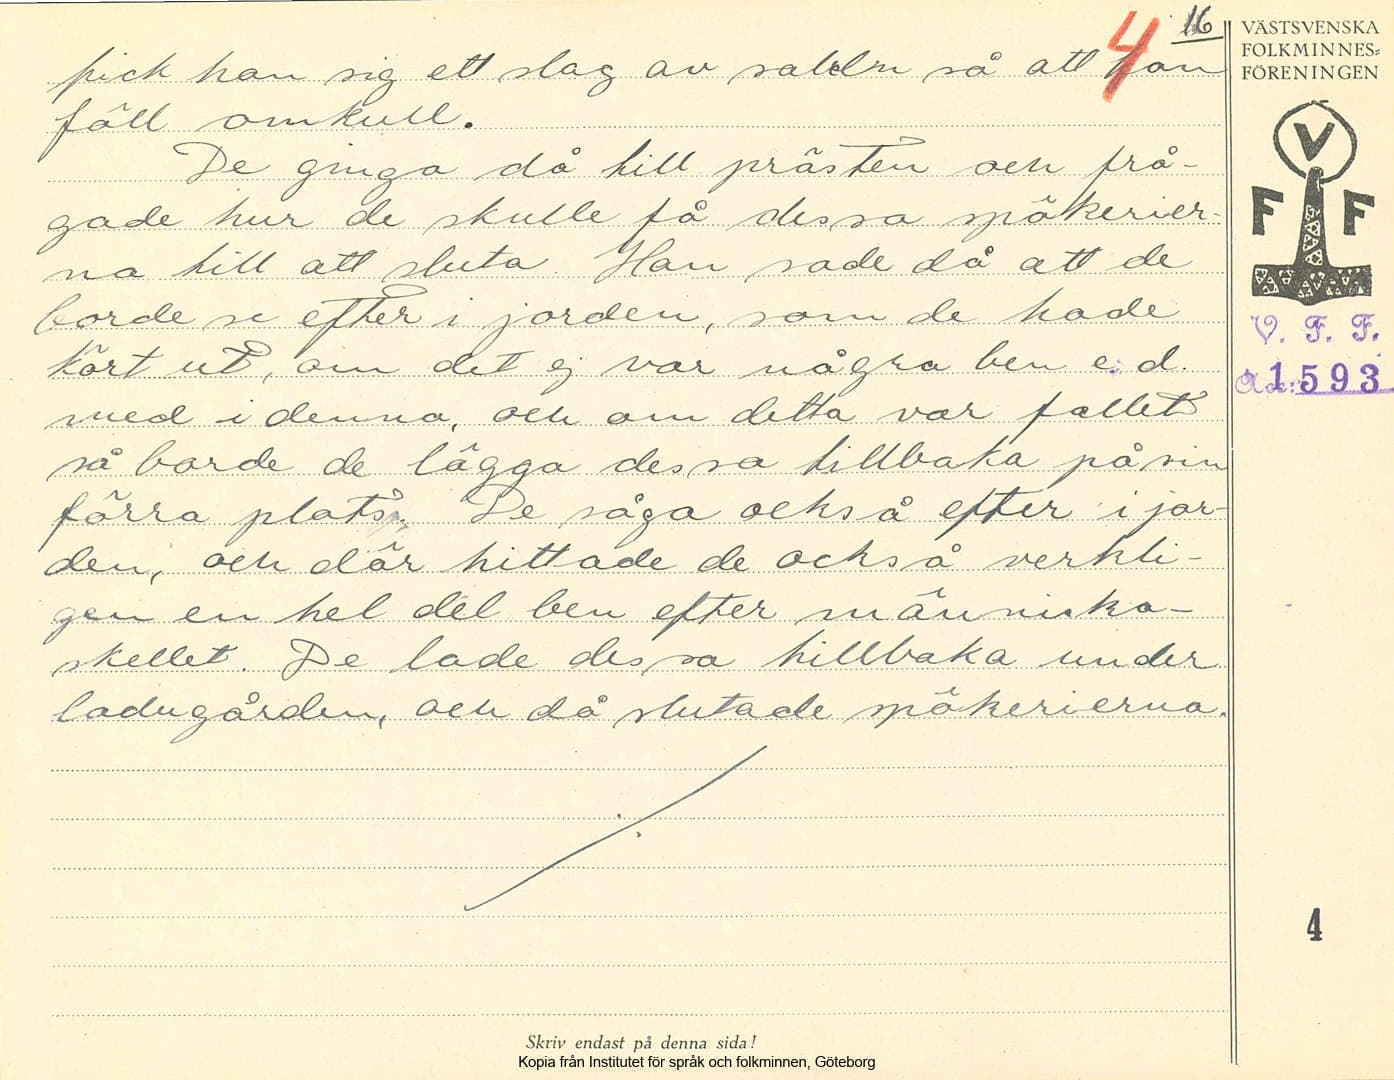 16
4
fick han sig ett slag av sabeln så att han
föll omkull.
De gingo då till prästen och frå-
gade hur de skulle få dessa spökerier-
na till att sluta. Han sade då att de
borde se efter i jorden, som de hade
kört ut, om det ej var några ben e. d.
med i denna, och om detta var fallet
så borde de lägga dessa tillbaka på sin
förra plats. De såga också efter i jor-
den, och där hittade de också verkli-
gen en hel del ben efter människo-
skellet. De lade dessa tillbaka under
ladugården, och då slutade spökerierna.
VÄSTSVENSKA
FOLKMINNES-
FÖRENINGEN
V
F F
V. F. F.
Acc: 1593
4
Skriv endast på denna sida!
Kopia från Institutet för språk och folkminnen, Göteborg